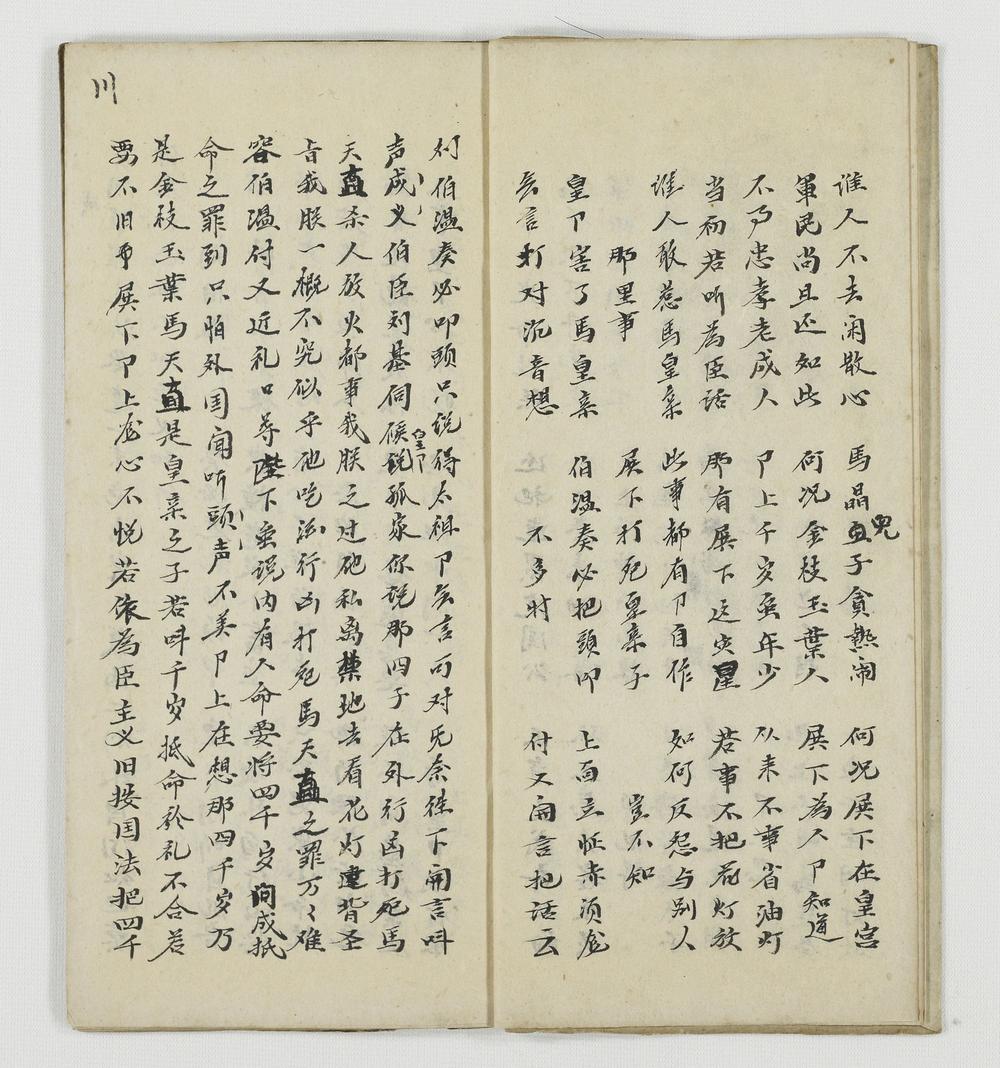 谁人不去闲散心 馬晶直子貪熱闹 何况展下在皇宫
軍民尚且还如此 何况金枝玉葉人 展下為人卩知道
不乃忠孝老成人 卩上千岁虽年少 从来不事省油灯
当初若听為臣話 那有展下这灾星 若事不把花灯放
谁人敢惹馬皇亲 此事都有卩自作 如何反怨与别人
那里事 展下打死皇亲子 岂不知
皇卩害了馬皇亲 伯温奏必把頭叩 上面立怔赤须龙
言打对沉音想 不多时 付又開言把話云
刘伯温奏必叩頭只说得太祖卩言可对无奈往下開言叫
声成义伯臣刘基伺候说孤家你说那四子在外行凶打死馬
天直杀人放火都事我朕之过他私离禁地去看花灯違背圣
旨我朕一概不究似乎他吃酒行凶打死馬天直之罪万々难
容伯温付又近礼口尊陛下虽说内有人命要将四千岁问成抵
命之罪到只怕外国闻听頭声不美卩上在想那四千岁乃
是金枝玉葉馬天直是皇亲之子若叫千岁抵命於礼不合若
要不旧命展下卩上龙心不悦若依為臣主义旧按国法把四千